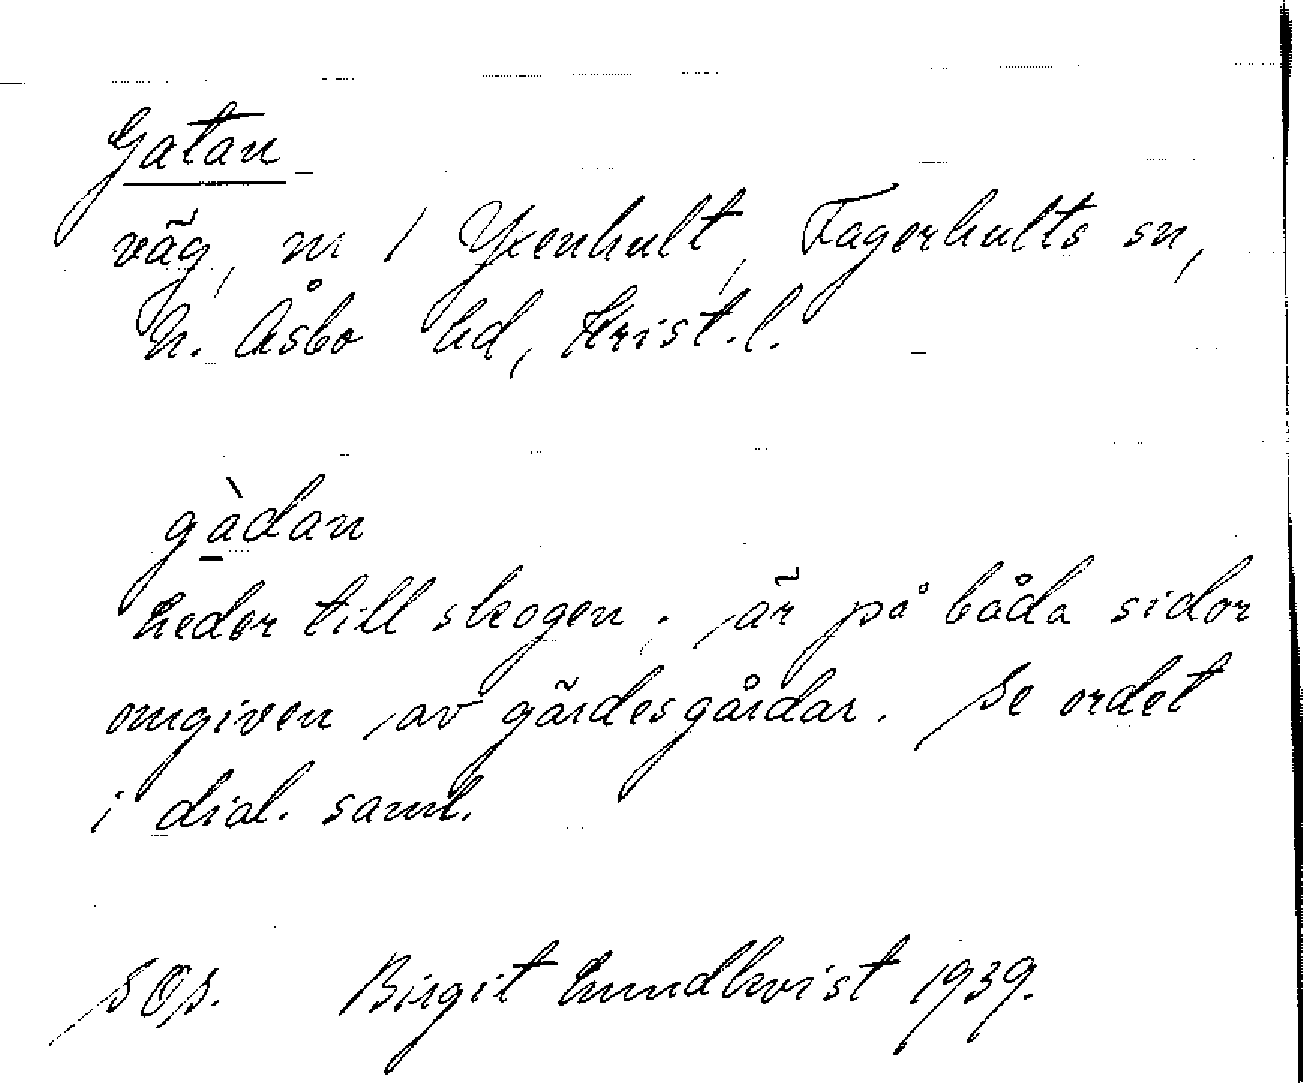 Gatan
väg, m / Yxenhult, Fagerhults sn,
N. Åsbo hd, Krist. l.
gàdan
Leder till skogen; är på båda sidor
omgiven av gärdesgårdar. Se ordet
i dial. saml.
Birgit Lundkvist 1939.